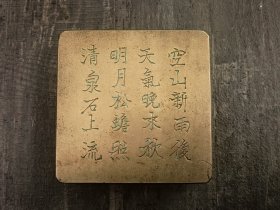 空山新雨後
天氣晚来秋
明月松照
清泉石上流